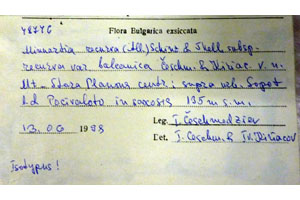 Flora Bulgarica exsiccata
Minuartia recurva (All.) Schinz & Thell. subsp.
recurva var. balcanica Česchm. & Kirjac. v. n.
Mt. Stara Planina centr. supra Sopot
l.d Počivaloto in saxosis m s. m.
13. 06 1998
Leg. I. Česchmedziev
Det. I. Ceschm. & Iv. Kirjacov
Isotypus!